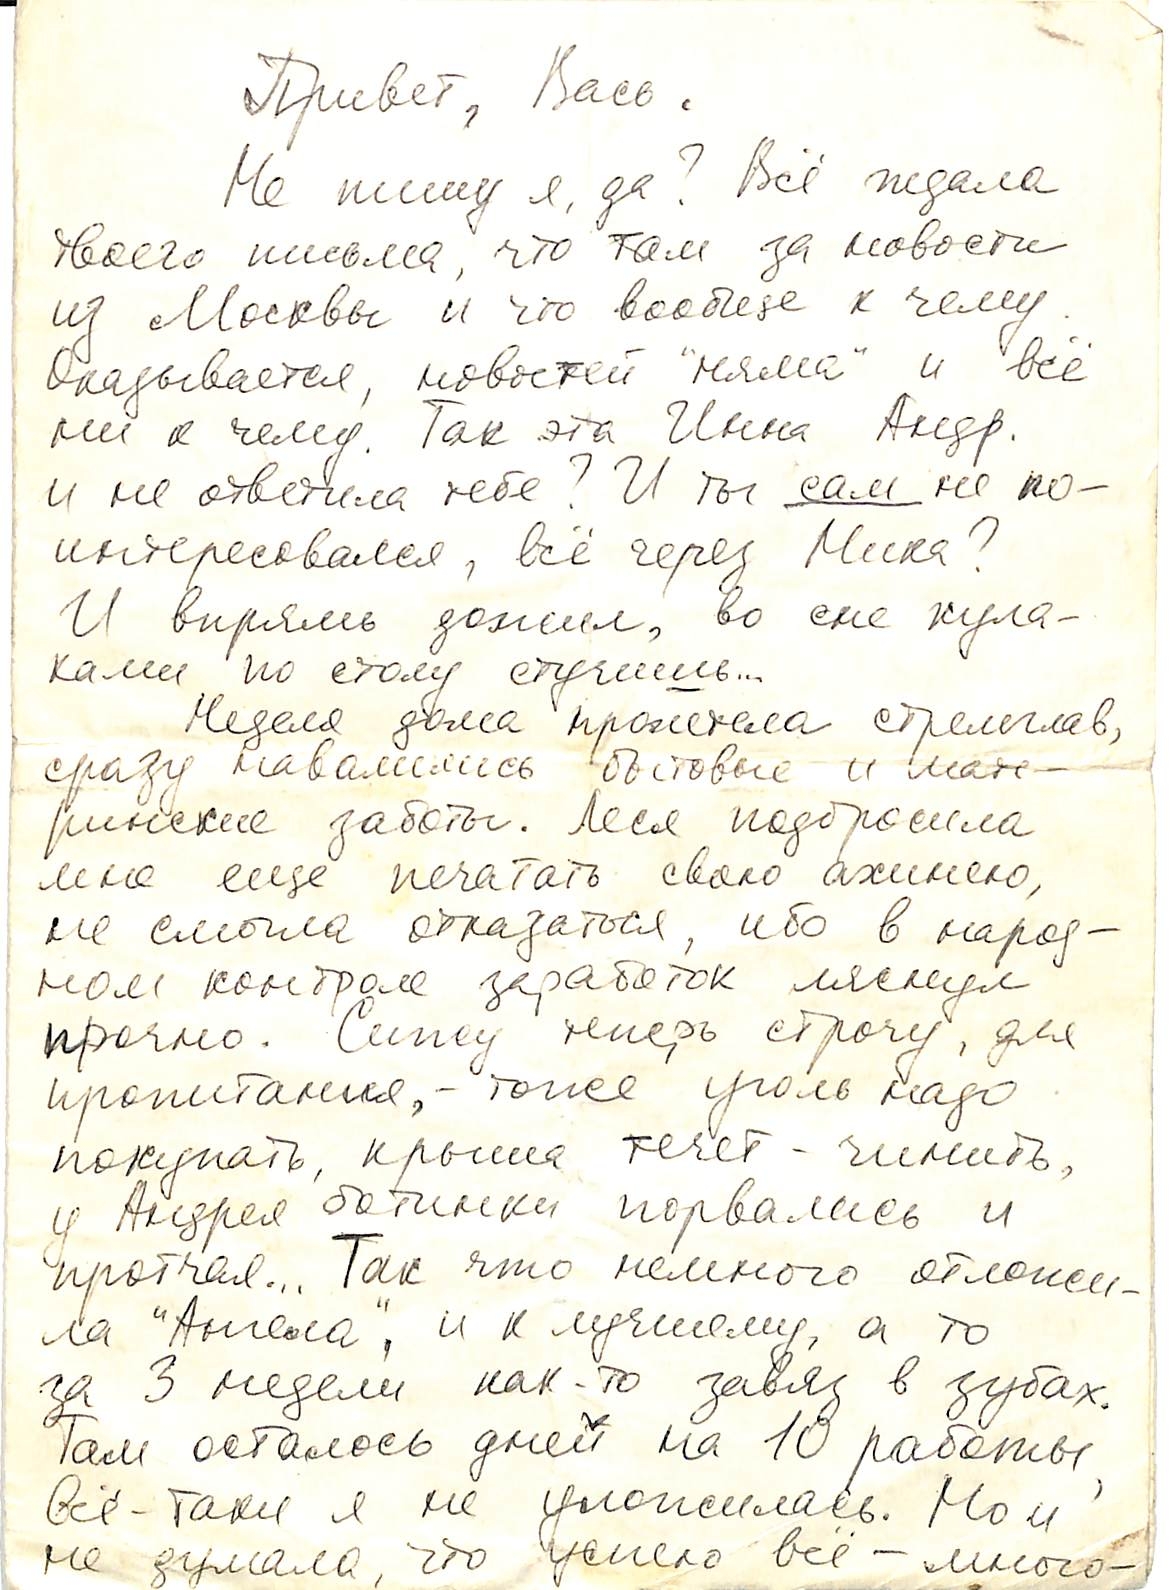 Привет, Вась.
Не пишу я, да? Всё ждала
твоего письма, что там за новости
из Москвы и что вообще к чему.
Оказывается, новостей "няма" и всё
ни к чему. Так эта Инна Андр.
и не ответила тебе? И ты сам не по-
интересовался, всё через Мика?
И впрямь дожил, во сне кула-
ками по столу стучишь...
Неделя дома пролетела стремглав,
сразу навалились бытовые и мате-
ринские заботы. Леся подбросила
мне еще печатать свою ахинею,
не смогла отказаться, ибо в народ-
ном контроле заработок ляснул
прочно. Сижу теперь строчу, для
пропитания, - тоже уголь надо
покупать, крыша течет - чинить,
у Андрея ботинки порвались и
протчая... Так что немного отложи-
ла "Ангела", и к лучшему, а то
за 3 недели как-то завяз в зубах.
Там осталось дней на 10 работы,
всё-таки я не уложилась. Но и
не думала, что успею всё - много-